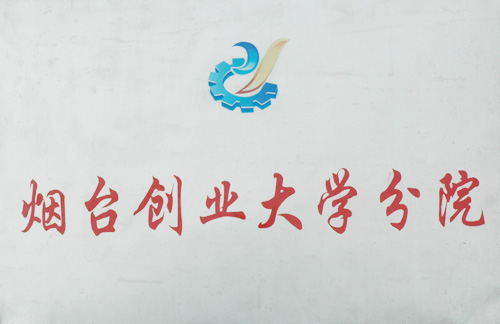 烟台创业大学分院